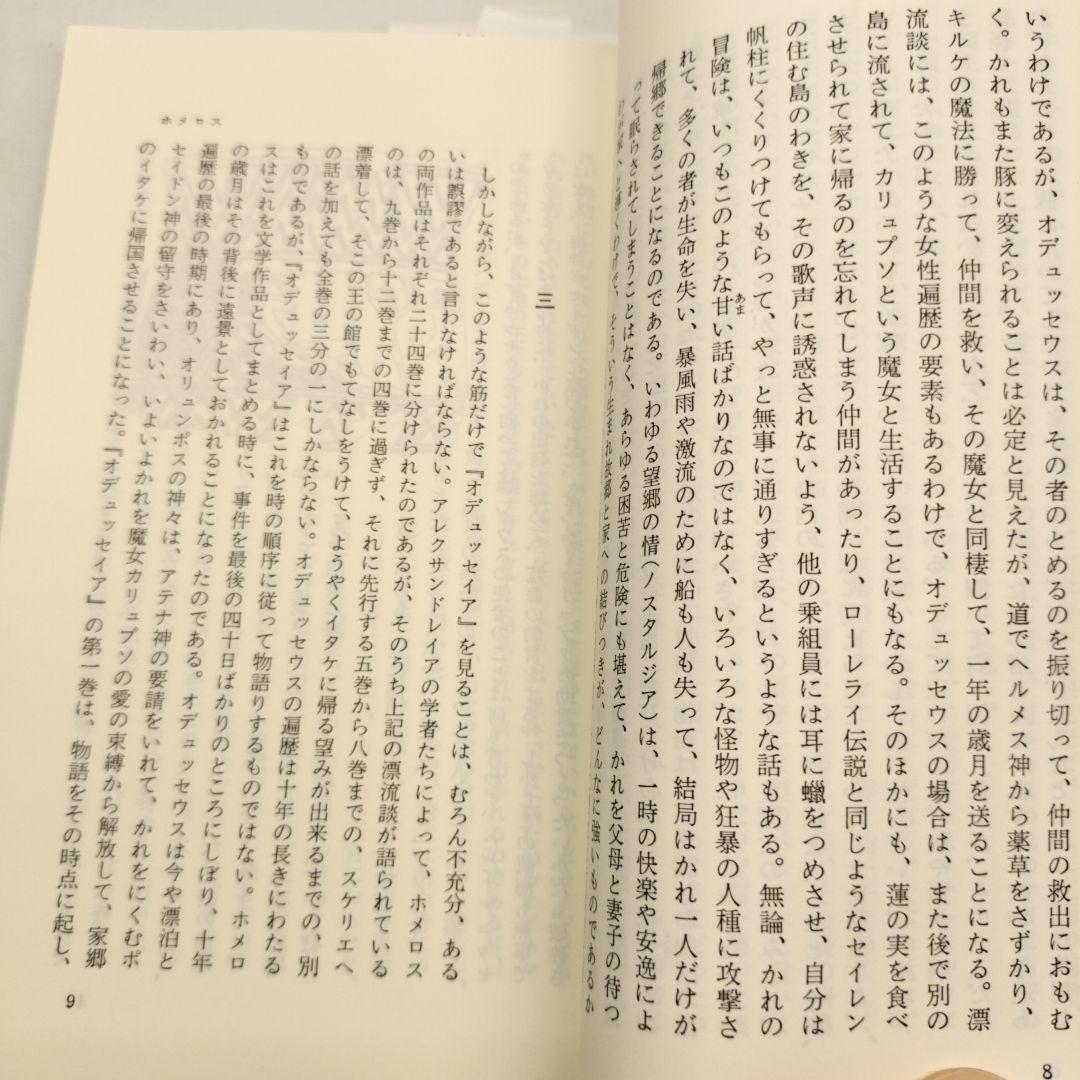 いうわけであるが、オデュッセウスは、その者のとめるのを振り切って、仲間の救出におもむ
く。かれもまた豚に変えられることは必定と見えたが、道でヘルメス神から薬草をさずかり、
キルケの魔法に勝って、仲間を救い、その魔女と同棲して、一年の歳月を送ることになる。漂
流談には、このような女性遍歴の要素もあるわけで、オデュッセウスの場合は、また後で別の
島に流されて、カリュプソという魔女と生活することにもなる。そのほかにも、蓮の実を食べ
させられて家に帰るのを忘れてしまう仲間があったり、ローレライ伝説と同じようなセイレン
の住む島のわきを、その歌声に誘惑されないよう、他の乗組員には耳に蠟をつめさせ、自分は
帆柱にくくりつけてもらって、やっと無事に通りすぎるというような話もある。無論、かれの
冒険は、いつもこのような甘い話ばかりなのではなく、いろいろな怪物や狂暴の人種に攻撃さ
あま
れて、多くの者が生命を失い、暴風雨や激流のために船も人も失って、結局はかれ一人だけが
帰郷できることになるのである。いわゆる望郷の情(ノスタルジア)は、一時の快楽や安逸によ
って眠らされてしまうことはなく、あらゆる困苦と危険にも堪えて、かれを父母と妻子の待つ
へと導くわけで、そういう生まれ故郷と家への結びつきが、どんなに強いものであるか
8
ホメロス
三
しかしながら、このような筋だけで『オデュッセイア』を見ることは、むろん不充分、ある
いは誤謬であると言わなければならない。アレクサンドレイアの学者たちによって、ホメロス
の両作品はそれぞれ二十四巻に分けられたのであるが、そのうち上記の漂流談が語られている
のは、九巻から十二巻までの四巻に過ぎず、それに先行する五巻から八巻までの、スケリエへ
漂着して、そこの王の館でもてなしをうけて、ようやくイタケに帰る望みが出来るまでの、別
の話を加えても全巻の三分の一にしかならない。オデュッセウスの遍歴は十年の長きにわたる
ものであるが、『オデュッセイア』はこれを時の順序に従って物語りするものではない。ホメロ
スはこれを文学作品としてまとめる時に、事件を最後の四十日ばかりのところにしぼり、十年
の歳月はその背後に遠景としておかれることになったのである。オデュッセウスは今や漂泊と
遍歴の最後の時期にあり、オリュンポスの神々は、アテナ神の要請をいれて、かれをにくむポ
セイドン神の留守をさいわい、いよいよかれを魔女カリュプソの愛の束縛から解放して、家郷
のイタケに帰国させることになった。『オデュッセイア』の第一巻は、物語をその時点に起し、
9